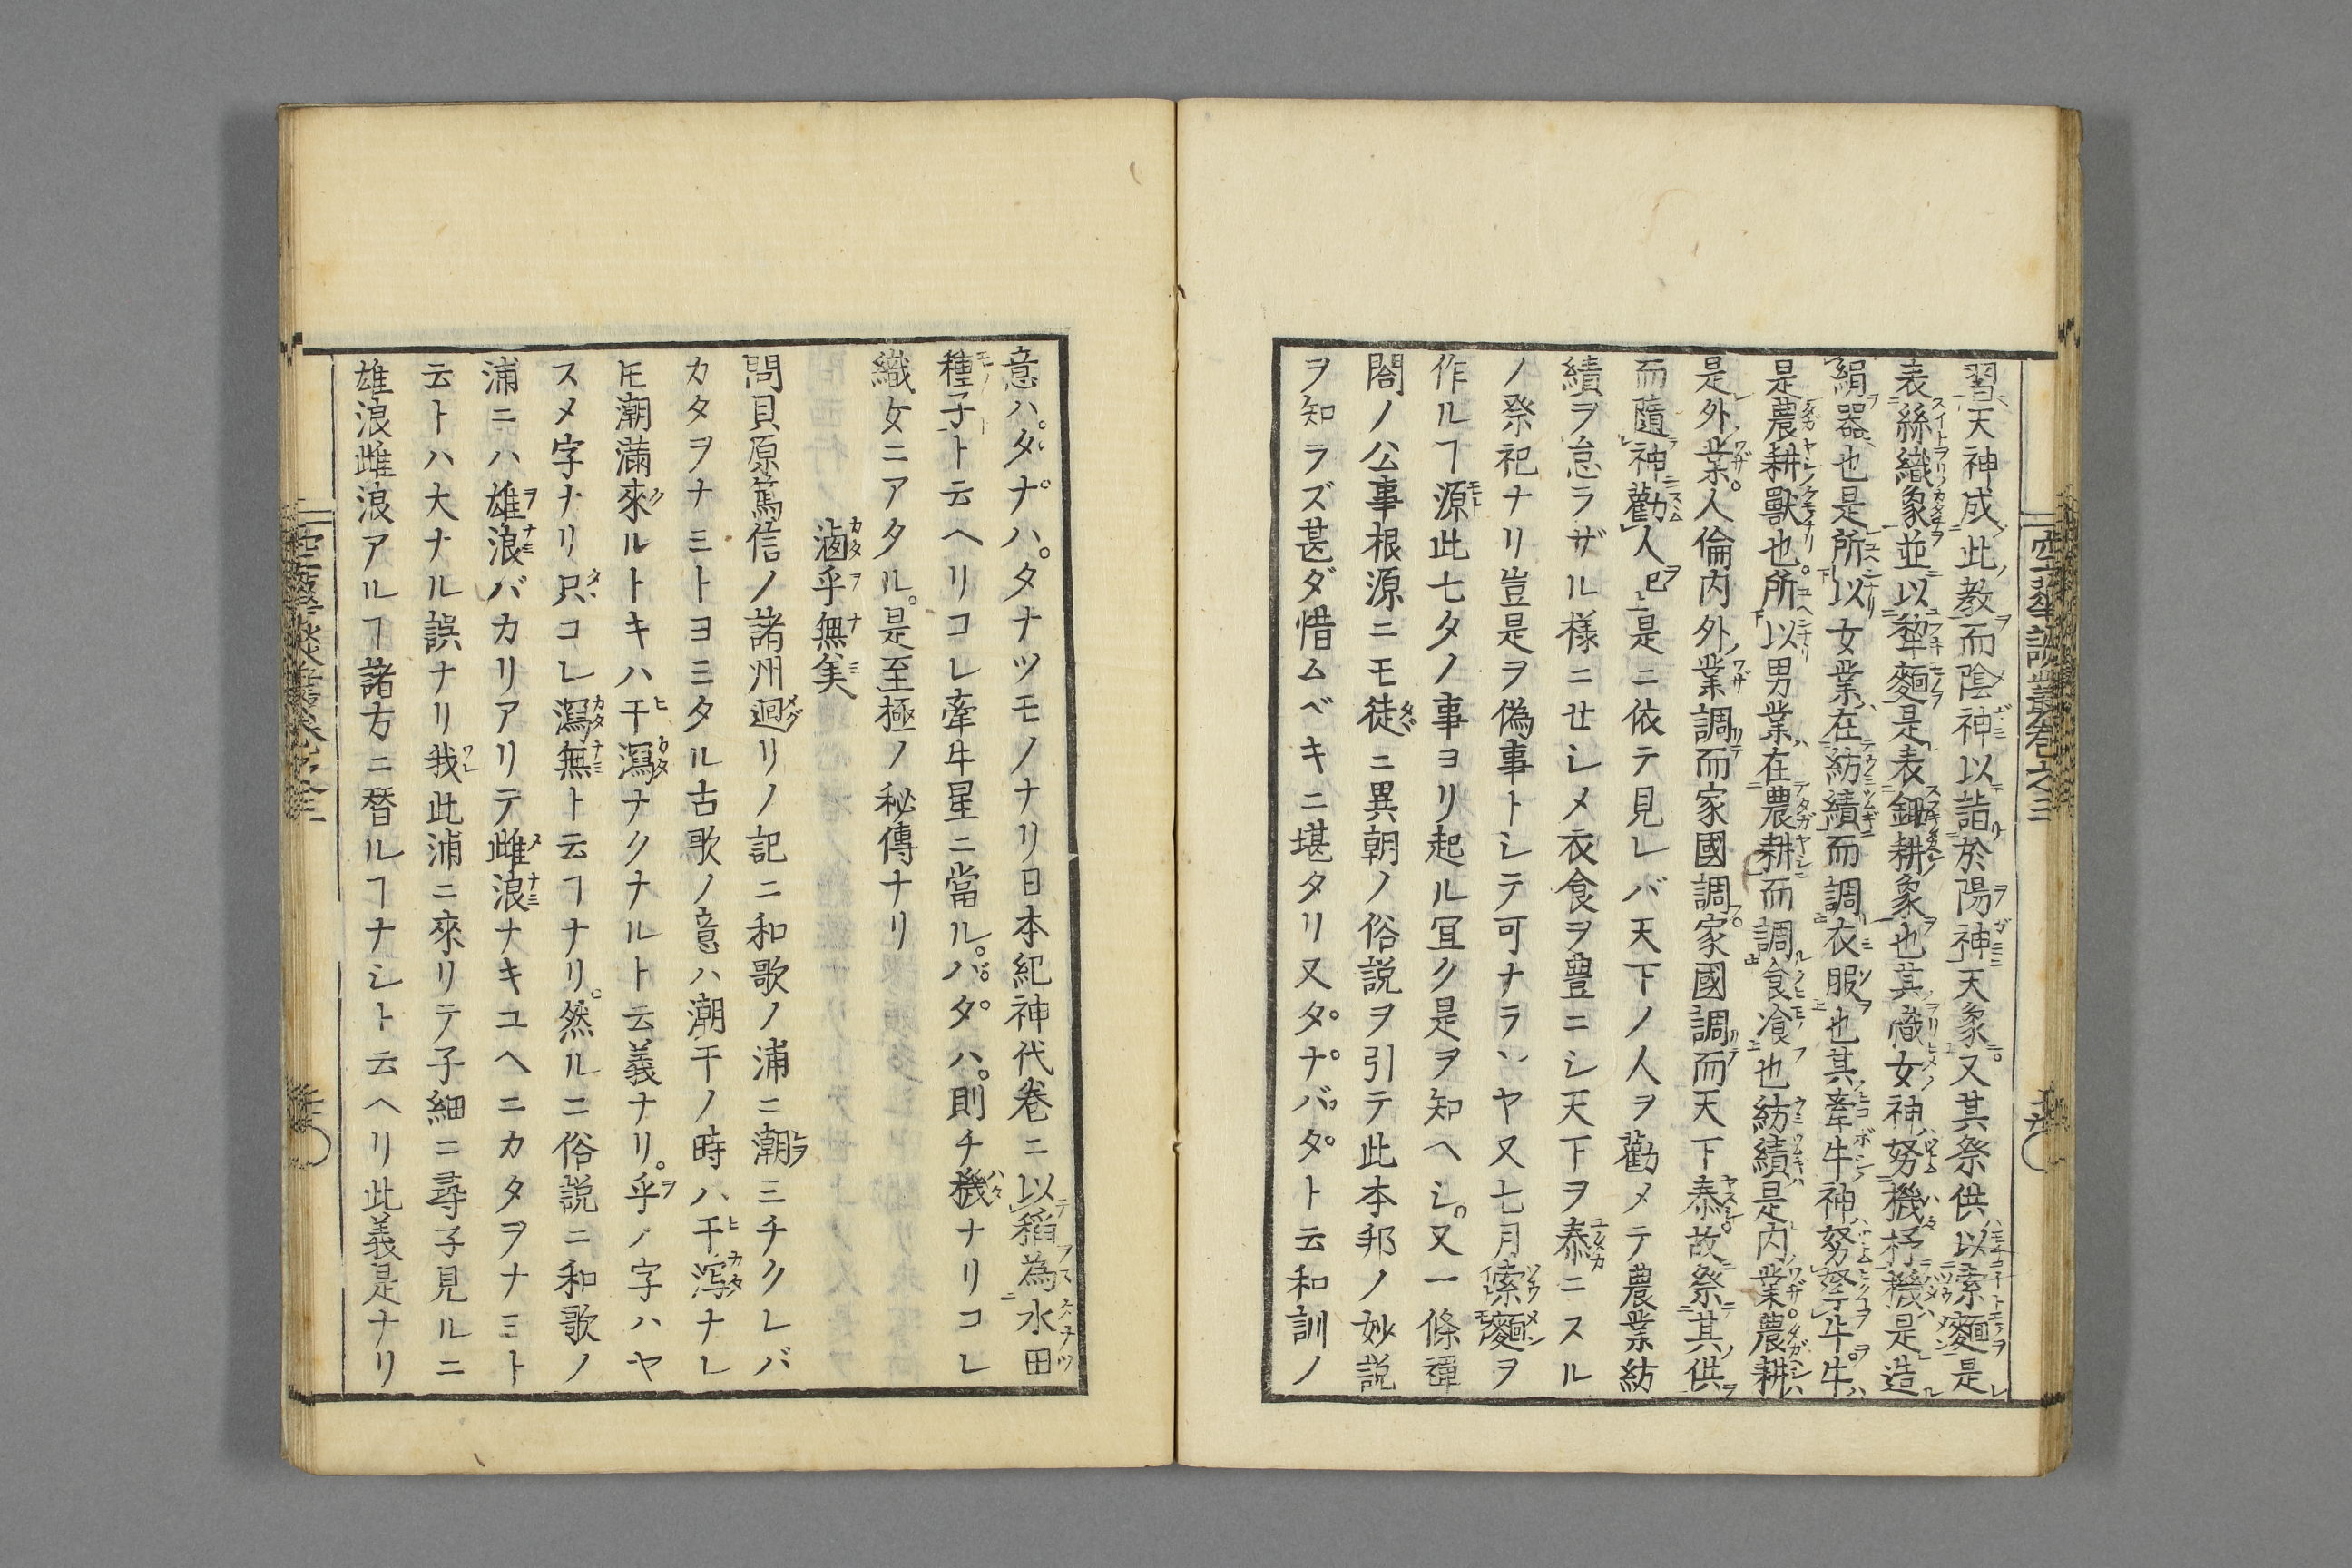 空華談叢巻之三
習天神成此教而陰神以詣於陽神天象又其祭供以索麵是
表絲織象並以犂麵是表鋤耕象也其幟女神努機杼機是造
絹器也是所以女業在紡績而調衣服也其牽牛神努牽牛牛
是農耕獸也所以男業在農耕而調食飡也紡績是内業農耕
是外業人倫内外業調而家國調家國調而天下泰故祭其供
而隨神勸人已上是ニ依テ見レバ天下ノ人ヲ勸メテ農業紡
績ヲ怠ラザル様ニせシメ衣食ヲ豊ニシ天下ヲ泰ニスル
ノ祭祀ナリ豈是ヲ偽事トシテ可ナランヤ又七月索麵ヲ
作ルヿ源此七夕ノ事ヨリ起ル冝ク是ヲ知ヘシ又一條禪
閤ノ公事根源ニモ徒ニ異朝ノ俗説ヲ引テ此本邦ノ妙説
ヲ知ラズ甚ダ惜ムベキニ堪タリ又タナバタト云和訓ノ
意ハタナハタナツモノナリ日本紀神代巻ニ以稲為水田
種子ト云ヘリコレ牽牛星ニ當ルバタハ則チ機ナリコレ
織女ニアタル是至極ノ秘傳ナリ
滷乎無美
問貝原篤信ノ諸州迴リノ記ニ和歌ノ浦ニ潮ミチクレバ
カタヲナミトヨミタル古歌ノ意ハ潮干ノ時ハ干瀉ナレ
𪜈潮滿來ルトキハ干瀉ナクナルト云義ナリ乎ノ字ハヤ
スメ字ナリ只コレ瀉無ト云ヿナリ然ルニ俗説ニ和歌ノ
浦ニハ雄浪バカリアリテ雌浪ナキユヘニカタヲナミト
云トハ大ナル誤ナリ我此浦ニ來リテ子細ニ尋子見ルニ
雄浪雌浪アルヿ諸方ニ替ルヿナシト云ヘリ此義是ナリ